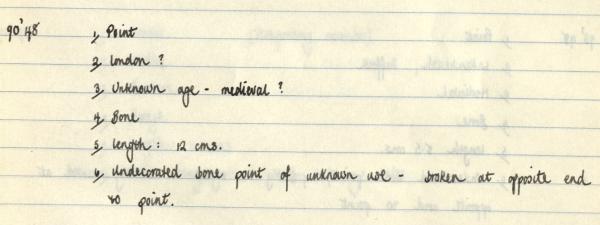 90'48 1, Point
2, London ?
3, Unknown age - medieval ?
4, Bone
5, Length : 12 cms.
6, Undecorated bone point of unknown use - broken at opposite end
to point.